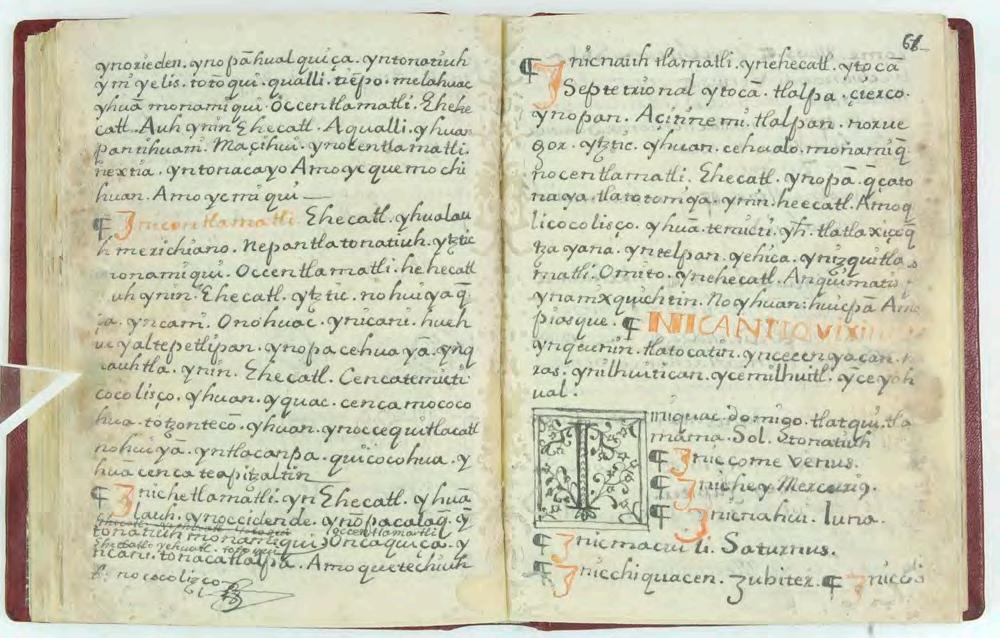 ynorieden. ynopāhualquiça. yntonatiuh
ymiyelis. totōqui. qualli. tiēpo. melahuac
yhuā monamiqui. Occentlamatli. Ehehe
catl. Auh ynin Ehecatl. Aqualli. yhuan
pantihuani. Maçihui. ynocentlamatli.
nextia. yntonacayo Amo yc quemochi
huan. Amo ycmiqui
¶ Inicontlamatli. Ehecatl. yhualau
h merichiano. Nepantlatonatiuh. ytztic
monamiqui. Occentlamatli. he hecatl
uh ynin. Ehecatl. ytztic. nohuiyāq̄
ynicani. Onohuac. ynicani. hueh
uey altepetlipan. ynopa cehuayā. ynq
auhtla. ynin. Ehecatl. Cencatemicti
cocolisço. yhuan. yquac. cenca mococo
hua. totzonteco. yhuan. ynoccequitlacatl
nohuiyā. yntlacanpa. quicocohua. y
huā cenca teapitzaltin
¶ Inichetlamatli. yn Ehecatl. yhuā
lauh. ynoccidende. ynopacalaq. ȳ
occentlamatli
tonatiuh monamiqui Oncaquiça. y
Ehecatl. yehuatl. totoqui
nicani. tonacatlalpā. Amo quetechiuh
nococolizço
68
¶ Inicnauh tlamatli. ynehecatl. ytocā
Septetrional ytocā. tlalpa. çierço.
ynopan. Açinnemi. tlalpan. norue
gox. ytztic. yhuan. cehualo. monamiq
nocentlamatli. Ehecatl. ynopā. q̄cato
naya. tlatotoniya. ynin. heecatl. Amoq
licocolisço. yhuā. temicti. yh. tlatlaxiçoq
tzayana. yntelpan. yehica. ynizquitla
matli. Omito. ynehecatl. Anquimati
ynamixquichtin. No yhuan: huicpā Amo
piasque. ¶ INICANTIQVIXI
ynqeunin. tlatocatin. ynceceenyacan.
ras. ynilhuitican. ycemilhuitl. yceyoh
ual.
Iniquac. domigo. tlatqui. tla
mama. Sol. Etonatiuh
¶ Iniccome venus.
¶ Inichey Mercuriq.
¶ Inicnahui. luna.
¶ Inicmacuili. Saturnus.
¶ Inicchiquacen. Jubiter. ¶ Inicchi